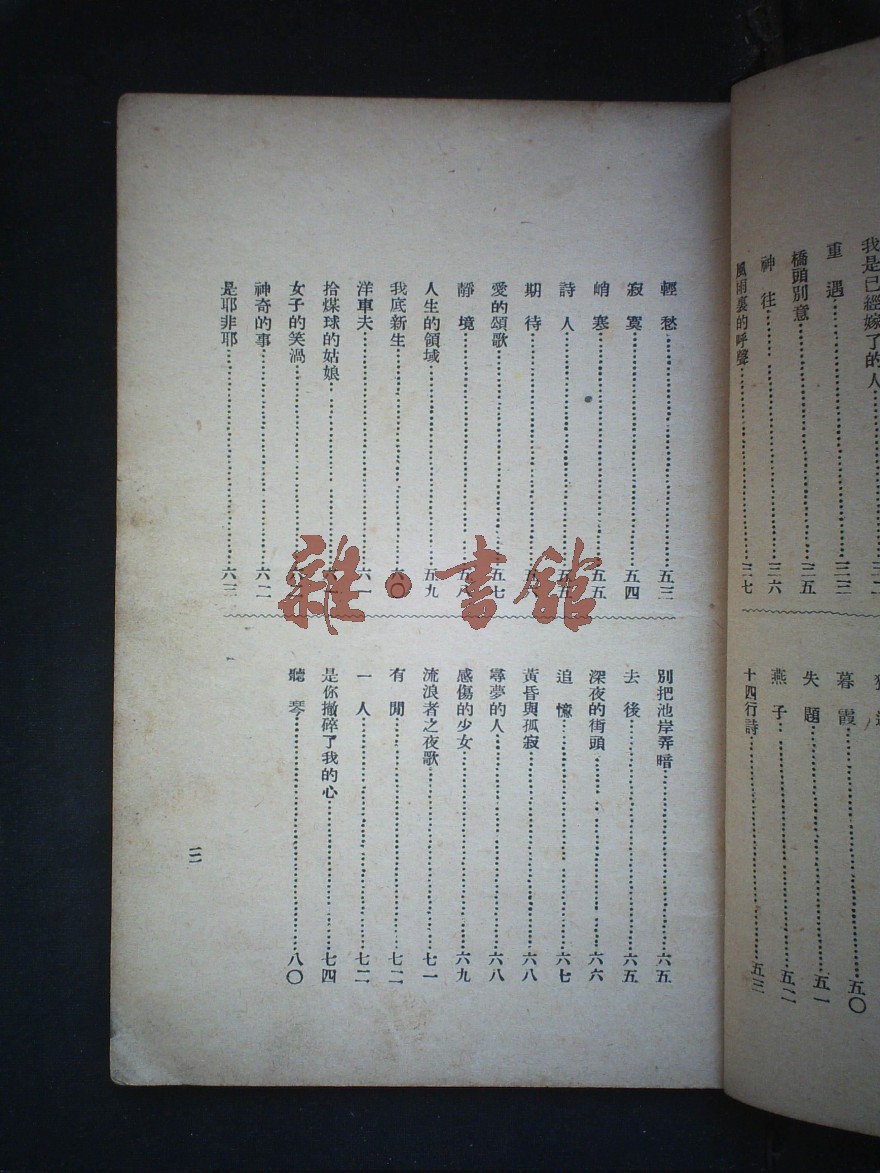 我是已經嫁了的人
重遇……三三
橋頭別意……三五
神往……三六
風雨裏的呼聲……三七
暮霞……五〇
失題……五一
燕子……五二
十四行詩……五三
輕愁……五三
寂寞……五四
峭寒……五五
詩人……五五
期待……
愛的頌歌……五七
靜境……五八
人生的領域……五九
我底新生……六〇
洋車夫……六一
拾煤球的姑娘……
女子的笑渦……
神奇的事……六二
是耶非耶……六三
別把池岸弄暗……六五
去後……六五
深夜的街頭……六六
追憶……六七
黃昏與孤寂……六八
尋夢的人……六八
感傷的少女……六九
流浪者之夜歌……七一
有閒……七二
一人……七二
是你撤碎了我的心……七四
聽琴……八〇
三
雜·書館